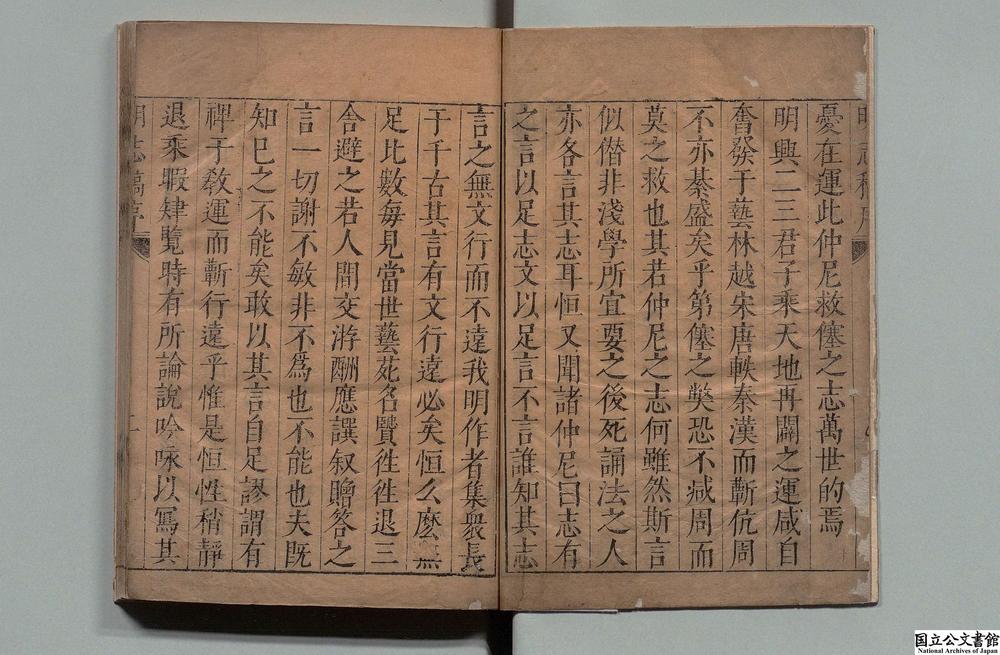 明志稿序
憂在運此仲尼救僿之志萬世的焉
明興二三君子乘天地再闢之運咸自
奮發于藝林越宋唐軼秦漢而蘄伉周
不亦綦盛矣乎第僿之獘恐不减周而
莫之救也其若仲尼之志何雖然斯言
似僭非淺學所宜要之後死誦法之人
亦各言其志耳恒又聞諸仲尼曰志有
之言以足志文以足言不言誰知其志
言之無文行而不遠我明作者集衆長
于千古其言有文行遠必矣恒么麽無
足比數每見當世藝苑名贒徃徃退三
舍避之若人間交游酬應譔叙贈答之
言一切謝不敏非不爲也不能也夫既
知已之不能矣敢以其言自足謬謂有
裨于敎運而蘄行遠乎惟是恒性稍靜
退乘暇肄覽時有所論說吟咏以寫其
明志稿序
國立公文書館
National Archives of Japan